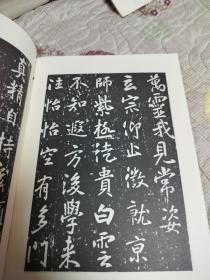 萬靈我見常姿
玄宗仰止徵就京
師紫極徒貴白雲
不知遐方後學來
往怡怡空有多門
真精自持